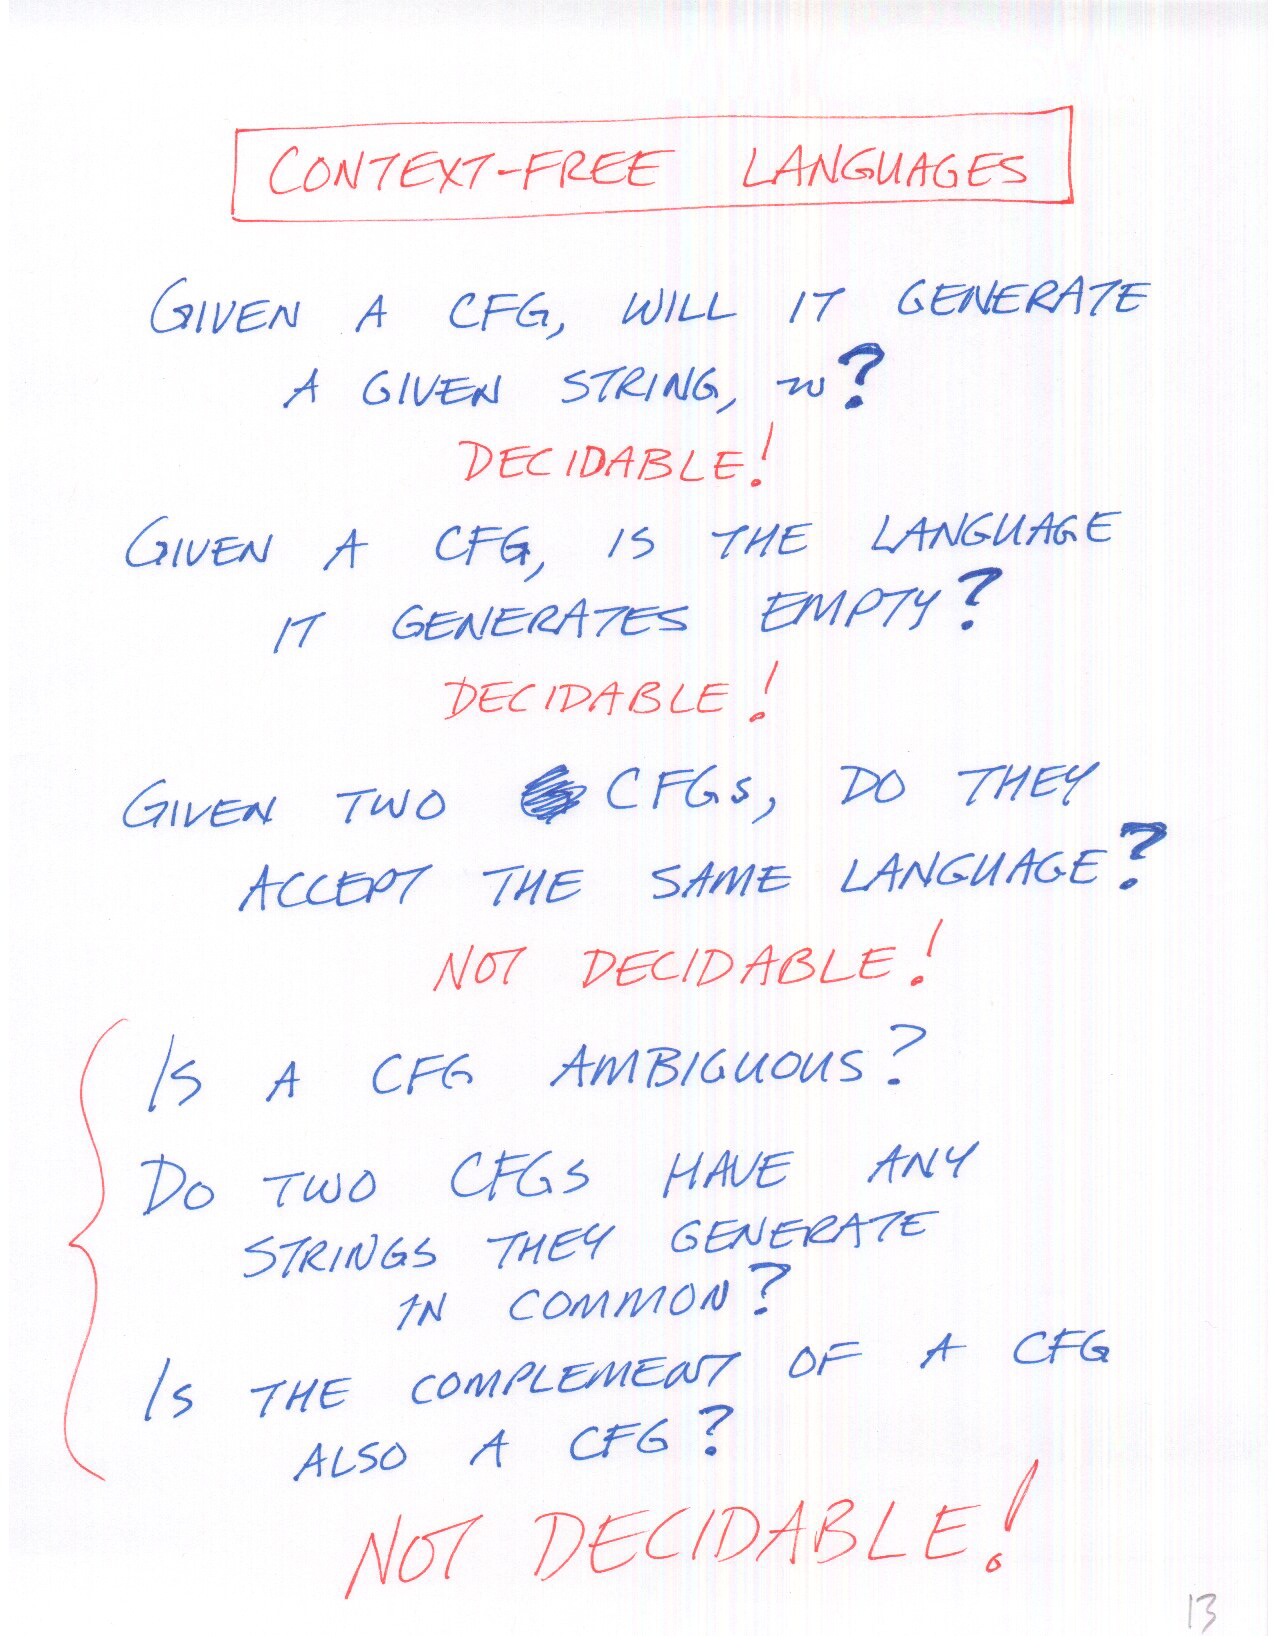 CONTEXT-FREE LANGUAGES
GIVEN A CFG, WILL IT GENERATE
A GIVEN STRING, w?
DECIDABLE!
GIVEN A CFG, IS THE LANGUAGE
IT GENERATES EMPTY?
DECIDABLE!
GIVEN TWO CFGs, DO THEY
ACCEPT THE SAME LANGUAGE?
NOT DECIDABLE!
IS A CFG AMBIGUOUS?
DO TWO CFGs HAVE ANY
STRINGS THEY GENERATE
IN COMMON?
IS THE COMPLEMENT OF A CFG
ALSO A CFG?
NOT DECIDABLE!
13